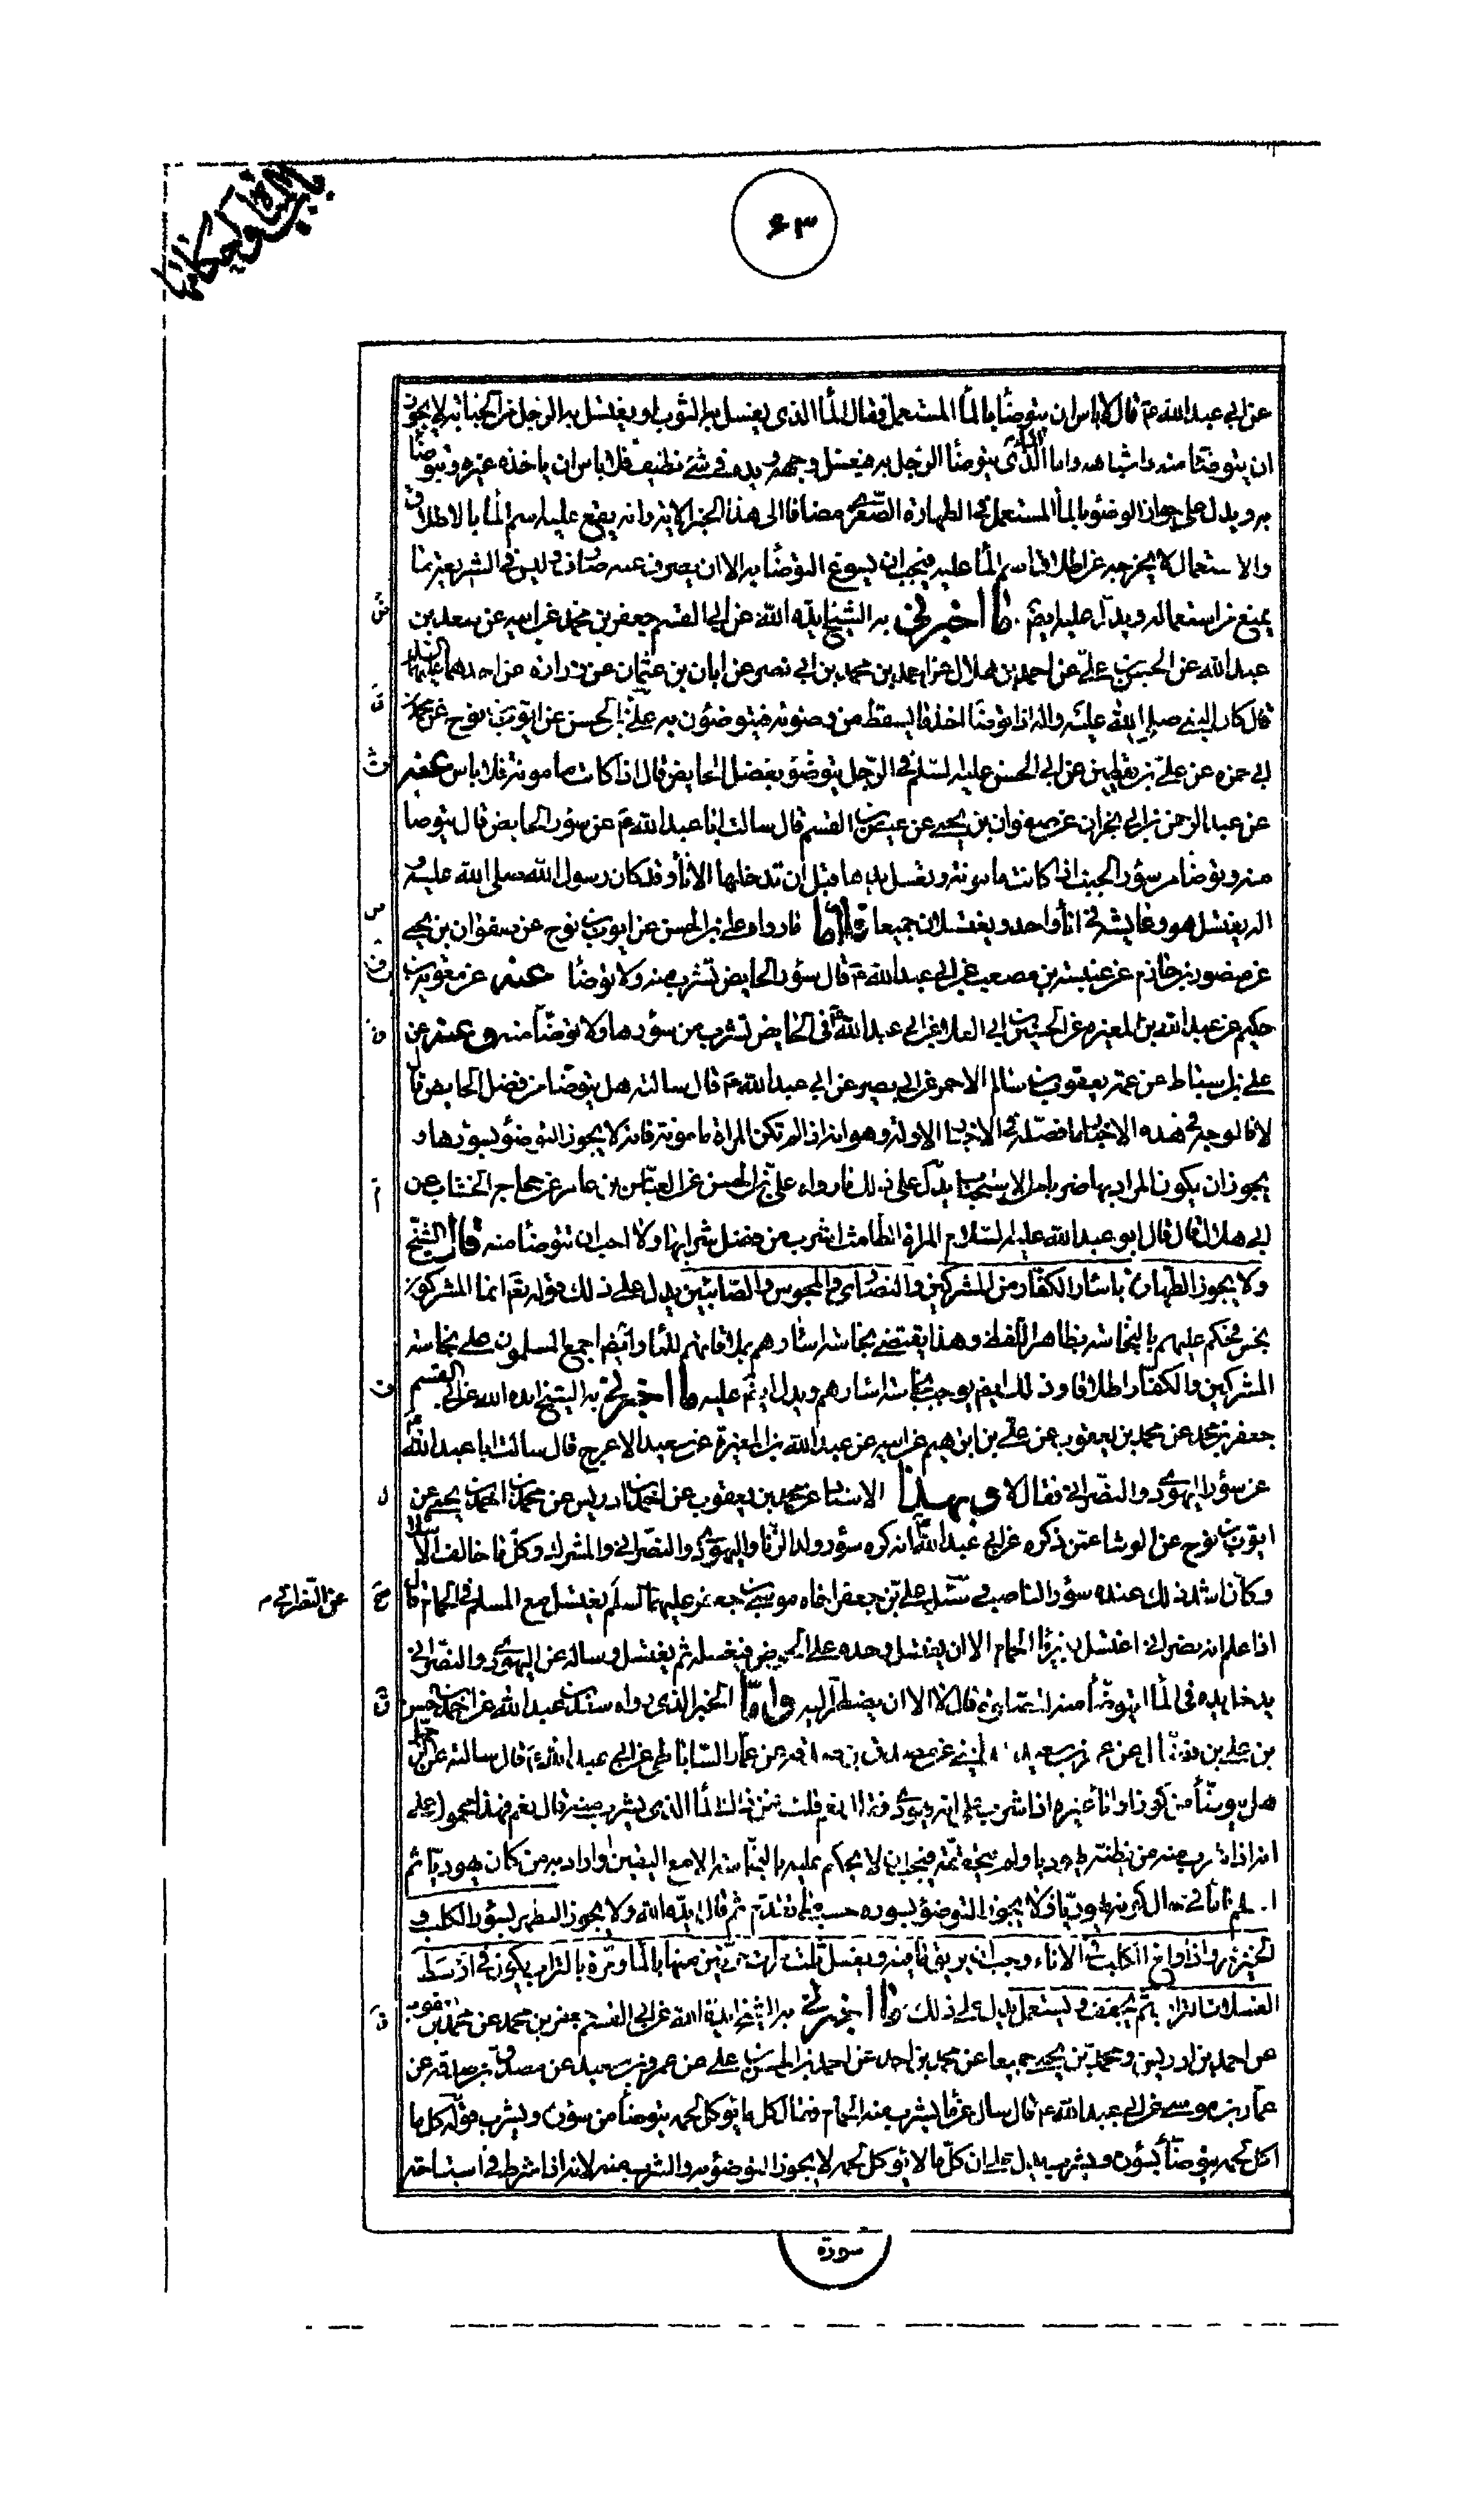 باب المياه واحكامها
٦٣
عن ابي عبد الله ع قال لا باس ان يتوضأ بالمأ المستعمل فقال المأ الذى يغسل به الثوب او يغتسل به الرجل من الجنابة لا يجوز
ان يتوضّا منه واشباهه واما الذى يتوضأ الرّجل به فيغسل وجهه ويده فى شئ نظيف فلا باس ان ياخذه غيره ويتوضّا
به ويدل على جواز الوضوء بالمأ المستعمل فى الطهارة الصّغرى مضافا الى هذا الخبر الاية وانه يقع عليه اسم المأ بالاطلاق
والاستعمال لا يخرجه عن اطلاق اسم المأ عليه فيجب ان يسوغ التوضّأ به الا ان يصرف عنه صارف وليس فى الشريعة ما
يمنع من استعماله ويدلّ عليه ايضم ما اخبرنى به الشيخ ايده الله عن ابي القسم جعفر بن محمد عن ابيه عن سعد بن ض
عبد الله عن الحسن بن عليّ عن احمد بن هلال عن احمد بن محمد بن ابى نصر عن ابان بن عثمان عن زرارة عن احدهما عليهما السلم
قال كان النبى صلى الله عليه واله اذا توضّأ اخذ ما يسقط من وضوئه فيتوضئون به عليّ بن الحسن عن ايّوب بن نوح عن محمد بن ق
ابى حمزه عن عليّ بن يقطين عن ابى الحسن عليه السّلم فى الرّجل يتوضؤ بفضل الحايض قال اذا كانت مامونة فلا باس عنه ث
عن عبد الرحمن بن ابى نجران عن صفوان بن يحيى عن عيص بن القسم قال سالت ابا عبد الله ع عن سؤر الحايض قال يتوضا
منه وتوضأ من سؤر الجنب اذا كانت مامونة وتغسل يدها قبل ان تدخلها الاناء وقد كان رسول الله صلى الله عليه و
اله يغتسل هو وعايشة فى انأ واحد ويغتسلان جميعا فامّا ما رواه على بن الحسن عن ايوب بن نوح عن صفوان بن يحيى س
عن منصور بن حازم عن عنبسة بن مصعب عن ابى عبد الله ع قال سؤر الحايض تشرب منه ولا توضّا عنه عن معوية بن ق
حكيم عن عبد الله بن المغيره عن الحسين بن ابى العلا عن ابى عبد الله ع فى الحايض تشرب من سؤرها ولا توضّأ منه وعنه عن ق
على بن اسباط عن عمّه يعقوب بن سالم الاحمر عن ابى بصير عن ابى عبد الله ع قال سالته هل يتوضّا من فضل الحايض قال
لا فالوجه فى هذه الاخبار ما فصّله فى الاخبار الاولة وهو انه اذا لم تكن المراة مامونة فانه لا يجوز التوضؤ بسؤرها و
يجوز ان يكون المراد بها ضربا من الاستحباب يدلّ على ذلك ما رواه عليّ بن الحسن عن العبّاس بن عامر عن حجاج الخشاب عن م
ابى هلال قال قال ابو عبد الله عليه السّلام المراة الطامث اشرب من فضل شرابها ولا احب ان تتوضأ منه قال الشّيخ
ولا يجوز الطّهارة باسئار الكفّار من المشركين والنّصارى والمجوس والصّابئين يدل على ذلك قوله تعم انما المشركون
نجس فحكم عليهم بالنّجاسة بظاهر اللّفظ وهذا يقتضى نجاسة اسئارهم بملاقاتهم للمأ وايضم اجمع المسلمون على نجاسة
المشركين والكفّار اطلاقا وذلك ايضم يوجب نجاسة اسئارهم ويدل ايضم عليه ما اخبرنى به الشيخ ايده الله عن ابى القسم ف
جعفر بن محمد عن محمد بن يعقوب عن على بن ابرهيم عن ابيه عن عبد الله بن المغيرة عن سعيد الاعرج قال سالت ابا عبد الله ع
عن سؤر اليهودى والنصّرانى فقال لا وبهذا الاسناد عن محمد بن يعقوب عن احمد بن ادريس عن محمد بن احمد بن يحيى عن ل
ايوب بن نوح عن الوشا عمّن ذكره عن ابى عبد الله ع انه كره سؤر ولد الزّنا واليهودىّ والنصّرانى والمشرك وكلّ ما خالف الاسلام
وكان اشد ذلك عنده سؤر الناصب سئل على بن جعفر اخاه موسى بن جعفر عليهما السلم يغتسل مع المسلم فى الحمام قال ح عن النّصرانى م
اذا علم انه نصرانى اغتسل بغير مأ الحمام الا ان يغتسل وحده على الحوض فيغسله ثم يغتسل وساله عن اليهودىّ والنصّرانى
يدخل يده فى المأ ايتوضّأ منه للصّلوة قال لا الا ان يضطرّ اليه وامّا الخبر الذى رواه سعد بن عبد الله عن احمد بن حسن ق
بن على بن فضّال عن عمرو بن سعيد المدائنى عن مصدق بن صدقة عن عمّار السّاباطى عن ابى عبد الله ع قال سالته عن الرّجل
هل يتوضّأ من كوز او اناء غيره اذا شرب على انه يهودىّ فقال نعم قلت فمن ذاك المأ الذى يشرب منه قال نعم فهذا محمول على
انه اذا شرب منه من يظنّه يهوديا ولم يتحقّقه فيجب ان لا يحكم عليه بالنّجاسة الا مع اليقين او اراد به من كان يهوديّا ثم
اسلم فامّا فى حال كونه يهوديّا فلا يجوز التوضؤ بسوره حسب ما تقدّم ثم قال ايّده الله ولا يجوز التطهر بسؤر الكلب و
الخنزير واذا ولغ الكلب فى الاناء وجب ان يريق ما فيه ويغسل ثلث مرّات مرّتين منها بالمأ ومرّة بالتراب يكون فى اوسط
الغسلات التراب ثمّ يجفف ويستعمل يدل على ذلك ما اخبرنى به الشيخ ايّده الله عن ابى القسم جعفر بن محمد عن محمد بن يعقوب ق
عن احمد بن ادريس ومحمّد بن يحيى جميعا عن محمد بن احمد عن احمد بن الحسن بن على عن عمرو بن سعيد عن مصدق بن صدقة عن
عمار بن موسى عن ابى عبد الله ع قال سال عمّا يشرب منه الحمام فقال كل ما يوكل لحمه يتوضأ من سؤره ويشرب فقوله كل ما
اكل لحمه يتوضّأ بسؤره ويشرب يدل على ان كلّ ما لا يوكل لحمه لا يجوز التوضؤ به والشرب منه لانه اذا شرط فى استباحة
سوره